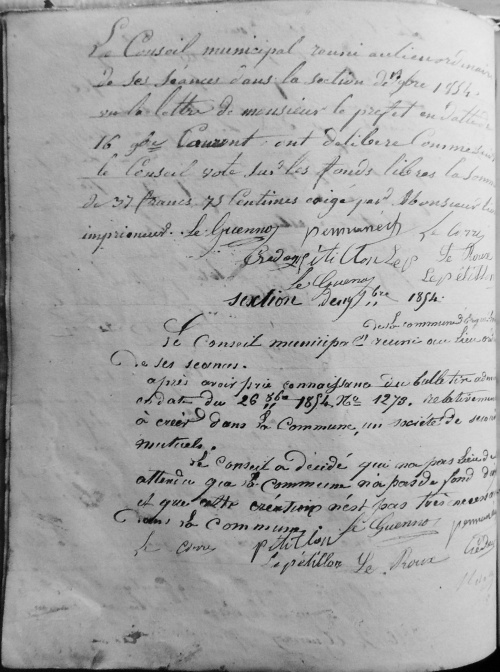 Le Conseil municipal reuni au lieu ordinaire
de ses séances dans la section de 9bre 1854.
vu la lettre de monsieur le prefet en datte du
16 9bre Courent; ont délibéré Comme suit
le Conseil vote sur les fonds libres la somme
de 37 francs 75 Centimes exigé par Monsieur
imprimeur. Le Guennos permanech Le corre
Crédou pétillon Le Roux
Le Guennos Le pétillon
section de 9bre 1854.
de la commune
Le Conseil municipal reuni au lieu
de ses seances.
après avoir prie connaissance du bulletin adm
en date du 26 8bre 1854 No 1278. relativement
à créer dans la Commune, un société de secours
mutuels.
Le Conseil a décidé qui na pas lieu de
attendu que la Commune n'a pas de fond
et que cette création n'est pas très necessaire
dans la Commune. Le Guennos permanech
Le corre pétillon Crédou
Le pétillon Le Roux